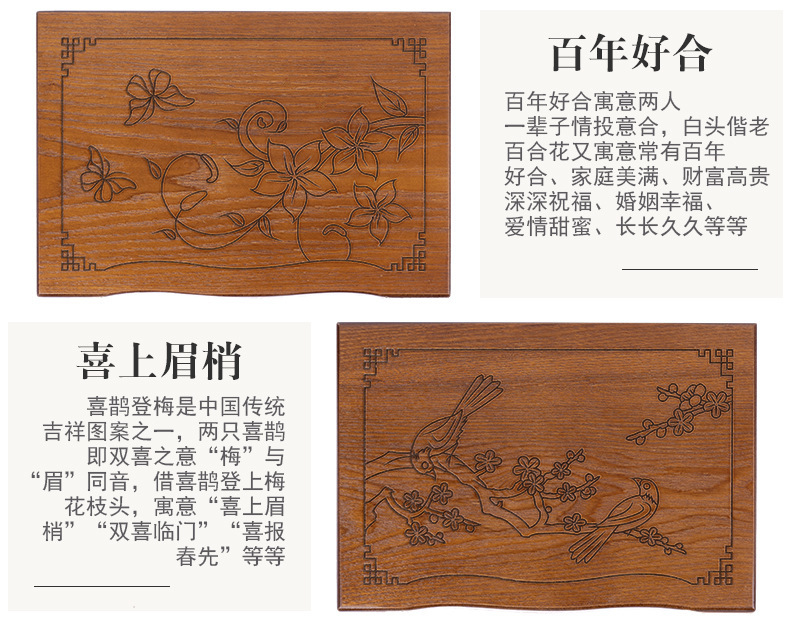 百年好合
百年好合寓意两人
一辈子情投意合，白头偕老
百合花又寓意常有百年
好合、家庭美满、财富高贵
深深祝福、婚姻幸福、
爱情甜蜜、长长久久等等
喜上眉梢
喜鹊登梅是中国传统
吉祥图案之一，两只喜鹊
即双喜之意“梅”与
“眉”同音，借喜鹊登上梅
花枝头，寓意“喜上眉
梢”“双喜临门”“喜报
春先”等等